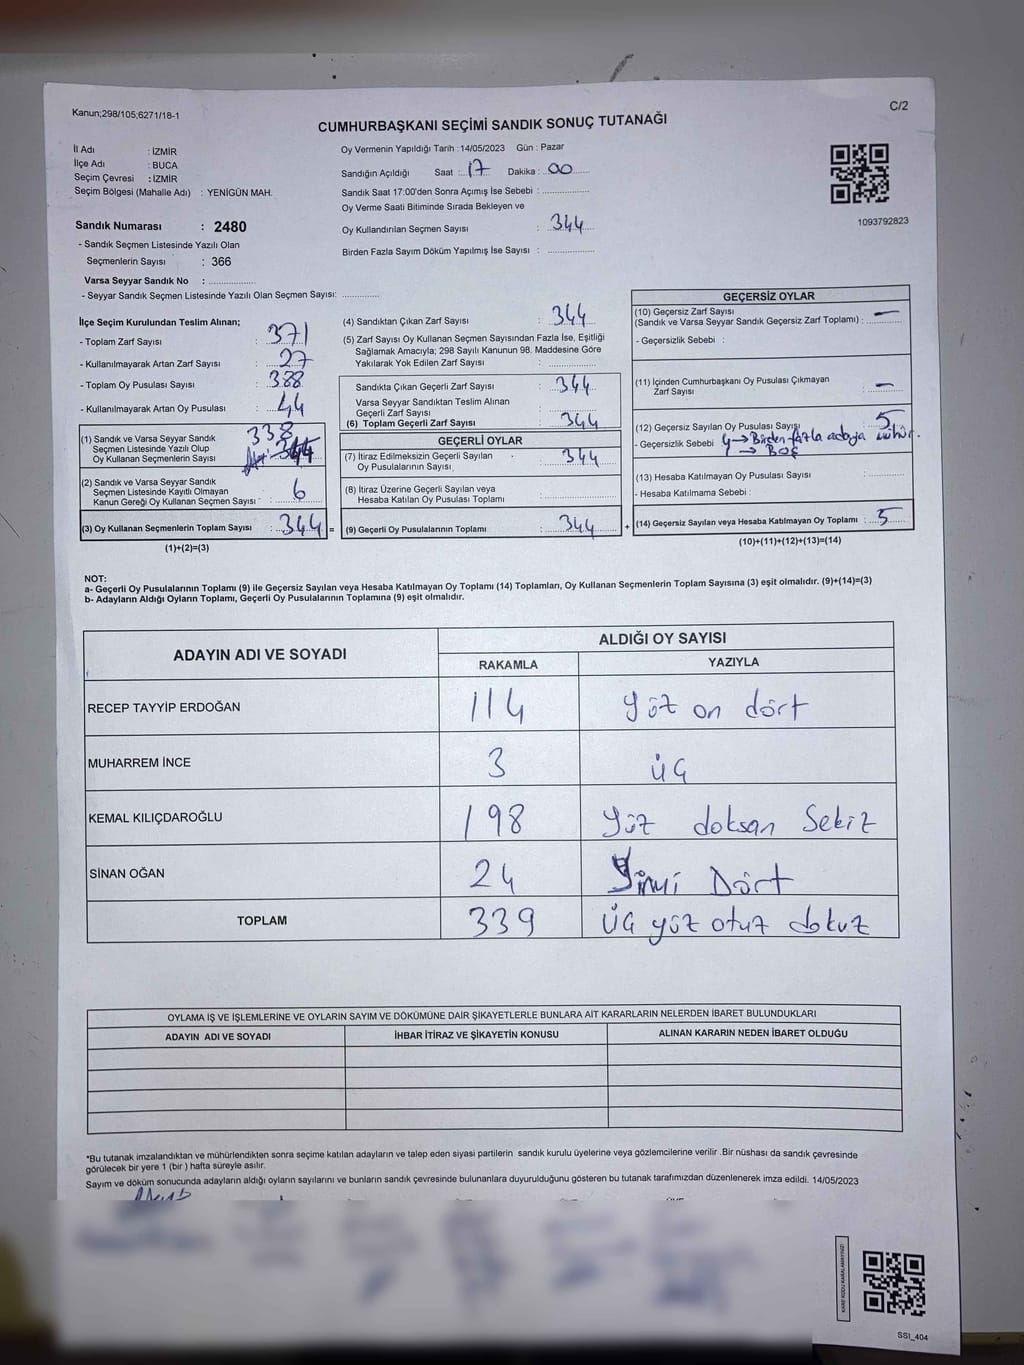 Kanun;298/105;6271/18-1
C/2
CUMHURBAŞKANI SEÇİMİ SANDIK SONUÇ TUTANAĞI
İl Adı : İZMİR
İlçe Adı : BUCA
Seçim Çevresi : İZMİR
Seçim Bölgesi (Mahalle Adı) : YENİGÜN MAH.
Sandık Numarası : 2480
- Sandık Seçmen Listesinde Yazılı Olan
Seçmenlerin Sayısı : 366
Varsa Seyyar Sandık No : ................
- Seyyar Sandık Seçmen Listesinde Yazılı Olan Seçmen Sayısı: ..............
Oy Vermenin Yapıldığı Tarih : 14/05/2023 Gün : Pazar
Sandığın Açıldığı Saat : 17 Dakika : 00
Sandık Saat 17:00'den Sonra Açımış İse Sebebi : ................
Oy Verme Saati Bitiminde Sırada Bekleyen ve
Oy Kullandırılan Seçmen Sayısı : 344
Birden Fazla Sayım Döküm Yapılmış İse Sayısı : ................
1093792823
İlçe Seçim Kurulundan Teslim Alınan;
- Toplam Zarf Sayısı : 371
- Kullanılmayarak Artan Zarf Sayısı : 27
- Toplam Oy Pusulası Sayısı : 388
- Kullanılmayarak Artan Oy Pusulası : 44
(1) Sandık ve Varsa Seyyar Sandık
Seçmen Listesinde Yazılı Olup
Oy Kullanan Seçmenlerin Sayısı
338
344
(2) Sandık ve Varsa Seyyar Sandık
Seçmen Listesinde Kayıtlı Olmayan
Kanun Gereği Oy Kullanan Seçmen Sayısı : 6
(3) Oy Kullanan Seçmenlerin Toplam Sayısı : 344 =
(1)+(2)=(3)
(4) Sandıktan Çıkan Zarf Sayısı : 344
(5) Zarf Sayısı Oy Kullanan Seçmen Sayısından Fazla İse, Eşitliği
Sağlamak Amacıyla; 298 Sayılı Kanunun 98. Maddesine Göre
Yakılarak Yok Edilen Zarf Sayısı : ................
Sandıkta Çıkan Geçerli Zarf Sayısı : 344
Varsa Seyyar Sandıktan Teslim Alınan
Geçerli Zarf Sayısı : ................
(6) Toplam Geçerli Zarf Sayısı : 344
GEÇERLİ OYLAR
(7) İtiraz Edilmeksizin Geçerli Sayılan
Oy Pusulalarının Sayısı : 344
(8) İtiraz Üzerine Geçerli Sayılan veya
Hesaba Katılan Oy Pusulası Toplamı : ................
(9) Geçerli Oy Pusulalarının Toplamı : 344 +
GEÇERSİZ OYLAR
(10) Geçersiz Zarf Sayısı
(Sandık ve Varsa Seyyar Sandık Geçersiz Zarf Toplamı) : —
- Geçersizlik Sebebi :
(11) İçinden Cumhurbaşkanı Oy Pusulası Çıkmayan
Zarf Sayısı : —
(12) Geçersiz Sayılan Oy Pusulası Sayısı : 5
- Geçersizlik Sebebi 4 → Birden fazla adaya mühür.
→ Boş
(13) Hesaba Katılmayan Oy Pusulası Sayısı : ................
- Hesaba Katılmama Sebebi :
(14) Geçersiz Sayılan veya Hesaba Katılmayan Oy Toplamı : 5
(10)+(11)+(12)+(13)=(14)
NOT:
a- Geçerli Oy Pusulalarının Toplamı (9) ile Geçersiz Sayılan veya Hesaba Katılmayan Oy Toplamı (14) Toplamları, Oy Kullanan Seçmenlerin Toplam Sayısına (3) eşit olmalıdır. (9)+(14)=(3)
b- Adayların Aldığı Oyların Toplamı, Geçerli Oy Pusulalarının Toplamına (9) eşit olmalıdır.
ADAYIN ADI VE SOYADI ALDIĞI OY SAYISI
RAKAMLA YAZIYLA
RECEP TAYYİP ERDOĞAN 114 Yüz on dört
MUHARREM İNCE 3 üç
KEMAL KILIÇDAROĞLU 198 Yüz doksan Sekiz
SİNAN OĞAN 24 Yirmi Dört
TOPLAM 339 üç yüz otuz dokuz
OYLAMA İŞ VE İŞLEMLERİNE VE OYLARIN SAYIM VE DÖKÜMÜNE DAİR ŞİKAYETLERLE BUNLARA AİT KARARLARIN NELERDEN İBARET BULUNDUKLARI
ADAYIN ADI VE SOYADI İHBAR İTİRAZ VE ŞİKAYETİN KONUSU ALINAN KARARIN NEDEN İBARET OLDUĞU
*Bu tutanak imzalandıktan ve mühürlendikten sonra seçime katılan adayların ve talep eden siyasi partilerin sandık kurulu üyelerine veya gözlemcilerine verilir .Bir nüshası da sandık çevresinde
görülecek bir yere 1 (bir ) hafta süreyle asılır.
Sayım ve döküm sonucunda adayların aldığı oyların sayılarını ve bunların sandık çevresinde bulunanlara duyurulduğunu gösteren bu tutanak tarafımızdan düzenlenerek imza edildi. 14/05/2023
SSI_404